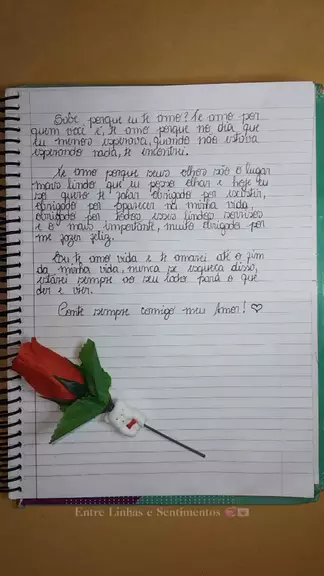 Sabe porque eu te amo? Te amo por
quem você é, te amo porque no dia que
eu menos esperava, quando não estava
esperando nada, te encontrei.
Te amo porque seus olhos são o lugar
mais lindo que eu posso olhar e hoje eu
só quero te falar obrigado por existir,
obrigado por aparecer na minha vida,
obrigado por todos esses lindos sorrisos
e o mais importante, muito obrigado por
me fazer feliz.
Eu te amo vida e te amarei até o fim
da minha vida, nunca se esqueça disso,
estarei sempre ao seu lado para o que
der e vier.
Conte sempre comigo meu Amor! ♡
Entre Linhas e Sentimentos